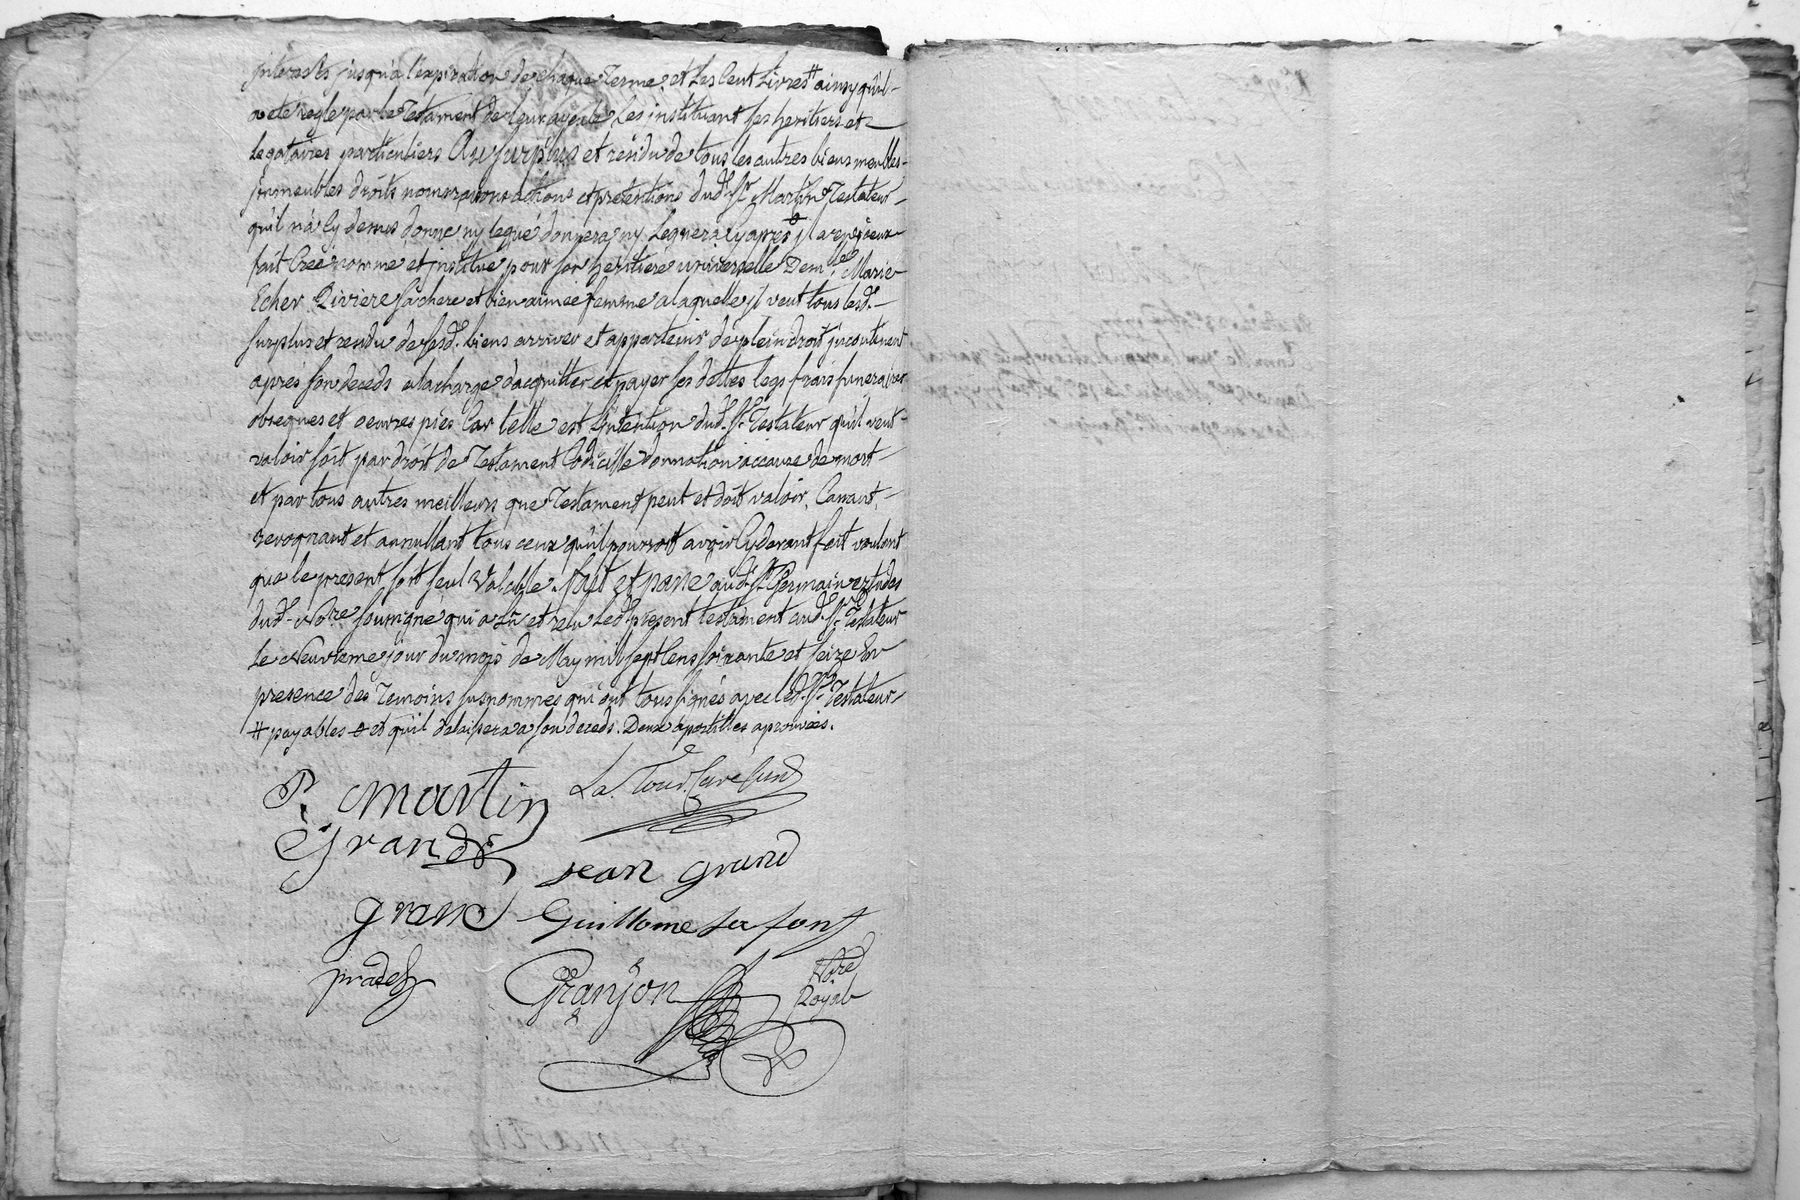 interests jusqu'a l'expiration de chaque terme, et les Cent Livres # ainsy qu'il
a eté reglé par le Testament de leur ayeule Les instituant ses heritiers et
Legataires particuliers Au surplus et residu de tous les autres biens meubles
jmmeubles droits noms raisons actions et pretentions dud. Sr. Martin Testateur
qu'il n'a cy dessus donné ny legué donnera, ny Leguera cy aprés
fait Créé nommé et jnstitué pour son heritiere universelle Demlle. Marie
Ester Riviere sa chere et bien aimée femme a laquelle jl veut tous lesd.
surplus et residu de sesd. biens arriver et appartenir de plein droit jncontinent
aprés son deceds a la charge d'acquitter et payer ses dettes legs frais funeraires
obseques et oeuvres pies Car telle est l'intention dud. Sr. Testateur qu'il veut
valoir soit par droit de Testament Codicille donnation a cause de mort
et par tous autres meilleurs que Testament peut et doit valoir, Cassant,
revoquant et annullant tous ceux qu'il pourroit avoir Cy devant fait voulant
que le present soit seul Valable. fait et passé aud. St. Germain etudes
dud. Nore. soussigné qui a Lû et relu Led. present testament aud. Sr. Testateur
Le Neuvieme jour du mois de May mil sept Cens soixante et seize En
presence des Temoins susnommés qui ont tous signés avec led. Sr. Testateur
# payables et qu'il delaissera a son deceds. Deux apostilles aprouvées.
P. Martin La Tour
Grand
jean grand
grand Guillome Lafont
pradel
Granjon Nore
Royal